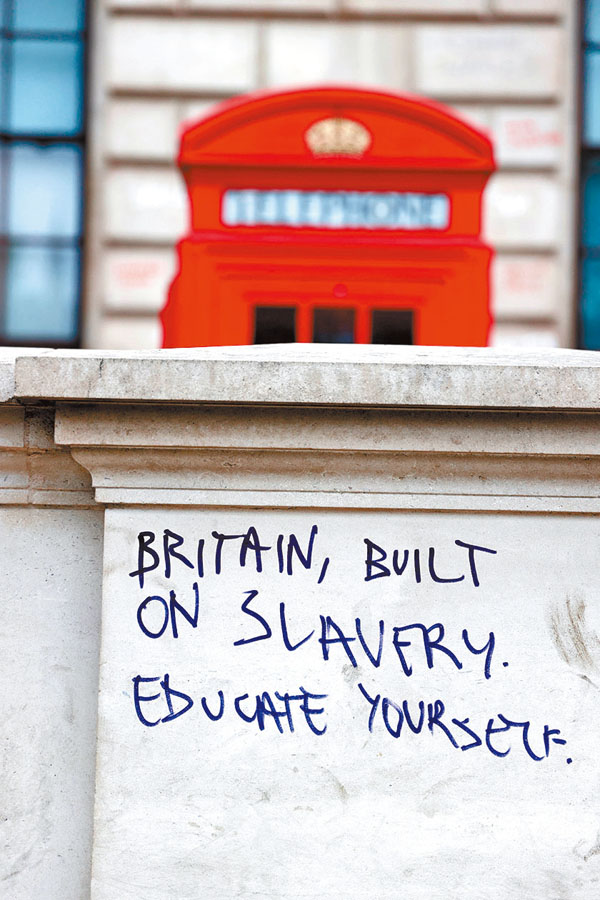 TELEPHONE
BRITAIN, BUILT
ON SLAVERY.
EDUCATE YOURSELF.